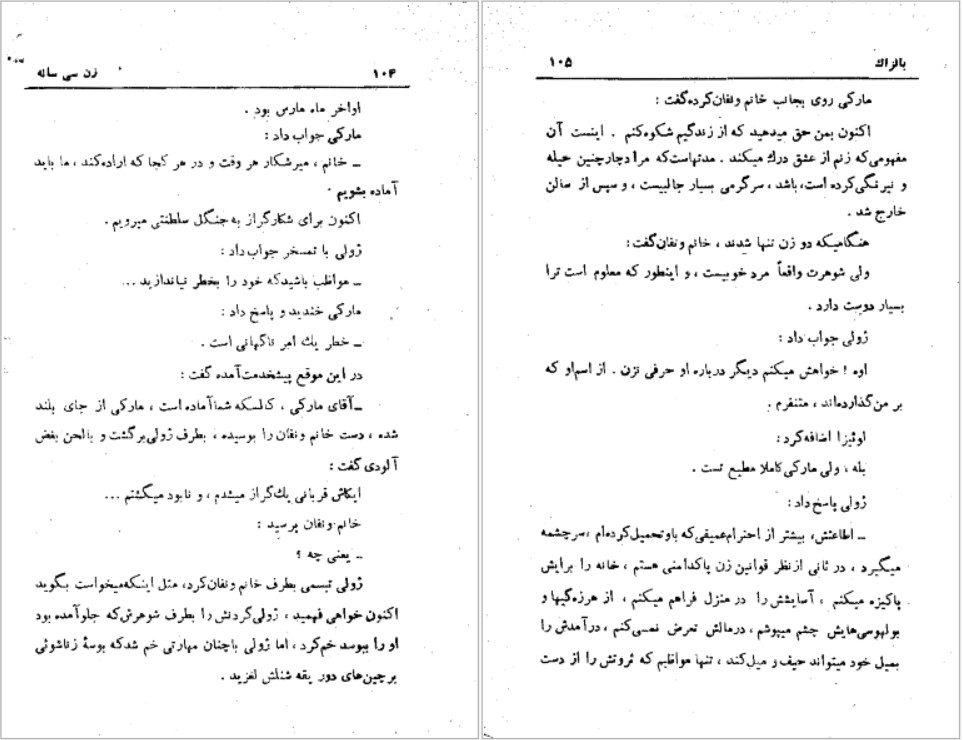 ۱۰۴ زن سی ساله
اواخر ماه مارس بود .
مارکی جواب داد :
ـ خانم ، میرشکار هر وقت و در هر کجا که اراده کند ، ما باید
آماده بشویم .
اکنون برای شکار گراز به جنگل سلطنتی میرویم .
ژولی با تمسخر جواب داد :
ـ مواظب باشید که خود را بخطر نیاندازید ...
مارکی خندید و پاسخ داد :
ـ خطر یك امر ناگهانی است .
در این موقع پیشخدمت آمده گفت :
ـ آقای مارکی ، کالسکه شما آماده است ، مارکی از جای بلند
شده ، دست خانم ونفان را بوسیده ، بطرف ژولی برگشت و بالحن بغض
آلودی گفت :
ایکاش قربانی یك گراز میشدم ، و نابود میگشتم ...
خانم ونفان پرسید :
ـ یعنی چه ؟
ژولی تبسمی بطرف خانم ونفان کرد، مثل اینکه میخواست بگوید
اکنون خواهی فهمید ، ژولی گردنش را بطرف شوهرش که جلو آمده بود
او را ببوسد خم کرد ، اما ژولی باچنان مهارتی خم شد که بوسهٔ زناشوئی
بر چین‌های دور یقه شنلش لغزید .
بالزاك ۱۰۵
مارکی روی بجانب خانم ونفان کرده گفت :
اکنون بمن حق میدهید که از زندگیم شکوه کنم . اینست آن
مفهومی که زنم از عشق درك میکند . مدتهاست که مرا دچار چنین حیله
و نیرنگی کرده است، باشد ، سرگرمی بسیار جالبیست ، و سپس از سالن
خارج شد .
هنگامیکه دو زن تنها شدند ، خانم ونفان گفت :
ولی شوهرت واقعاً مرد خوبیست ، و اینطور که معلوم است ترا
بسیار دوست دارد .
ژولی جواب داد :
اوه ! خواهش میکنم دیگر درباره او حرفی نزن . از اسم او که
بر من گذارده‌اند ، متنفرم .
لوئیزا اضافه کرد :
بله ، ولی مارکی کاملا مطیع تست .
ژولی پاسخ داد :
ـ اطاعتش، بیشتر از احترام عمیقی که باو تحمیل کرده‌ام ، سرچشمه
میگیرد ، در ثانی از نظر قوانین زن پاکدامنی هستم ، خانه را برایش
پاکیزه میکنم ، آسایشش را در منزل فراهم میکنم ، از هرزه گیها و
بولهوسی‌هایش چشم میپوشم ، در مالش تعرض نمی‌کنم ، درآمدش را
بمیل خود میتواند حیف و میل کند ، تنها مواظبم که ثروتش را از دست